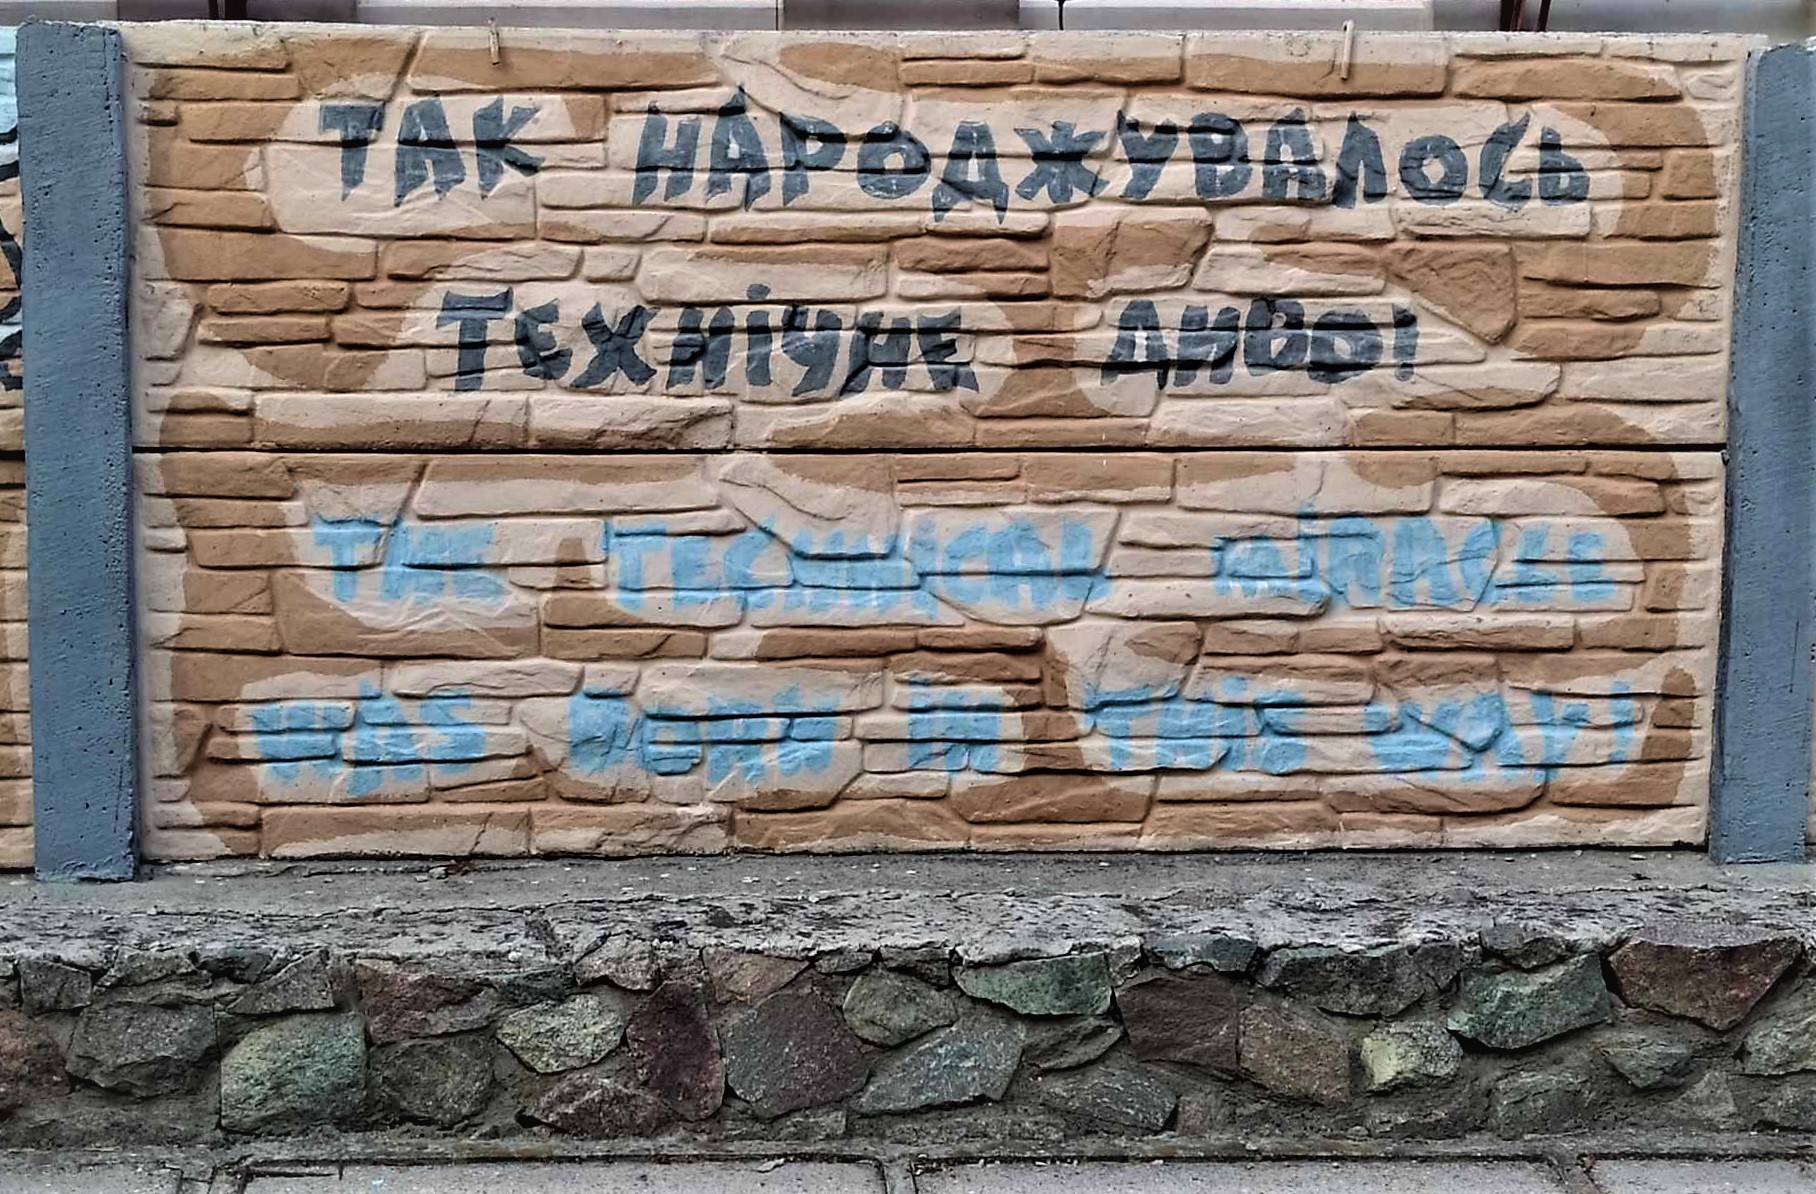 ТАК НАРОДЖУВАЛОСЬ
ТЕХНІЧНЕ ДИВО!
THE TECHNICAL MIRACLE
WAS BORN IN THIS WAY!